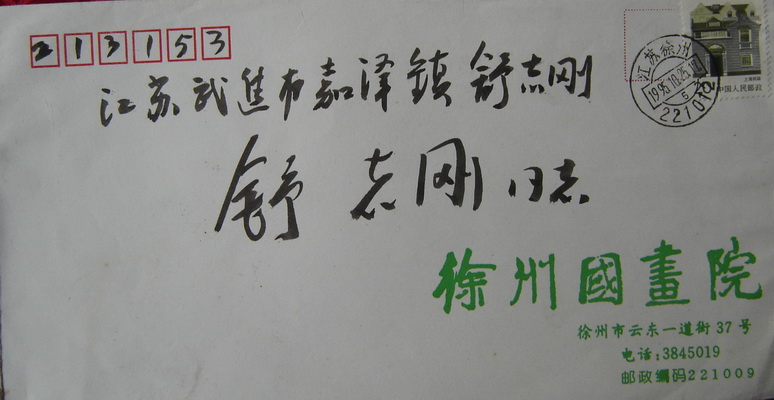 213153
江苏武进市嘉泽镇舒志刚
舒志刚同志
江苏徐州
1995.10.25
221012
上海民居
中国人民邮政
徐州國畫院
徐州市云东一道街37号
电话:3845019
邮政编码221009